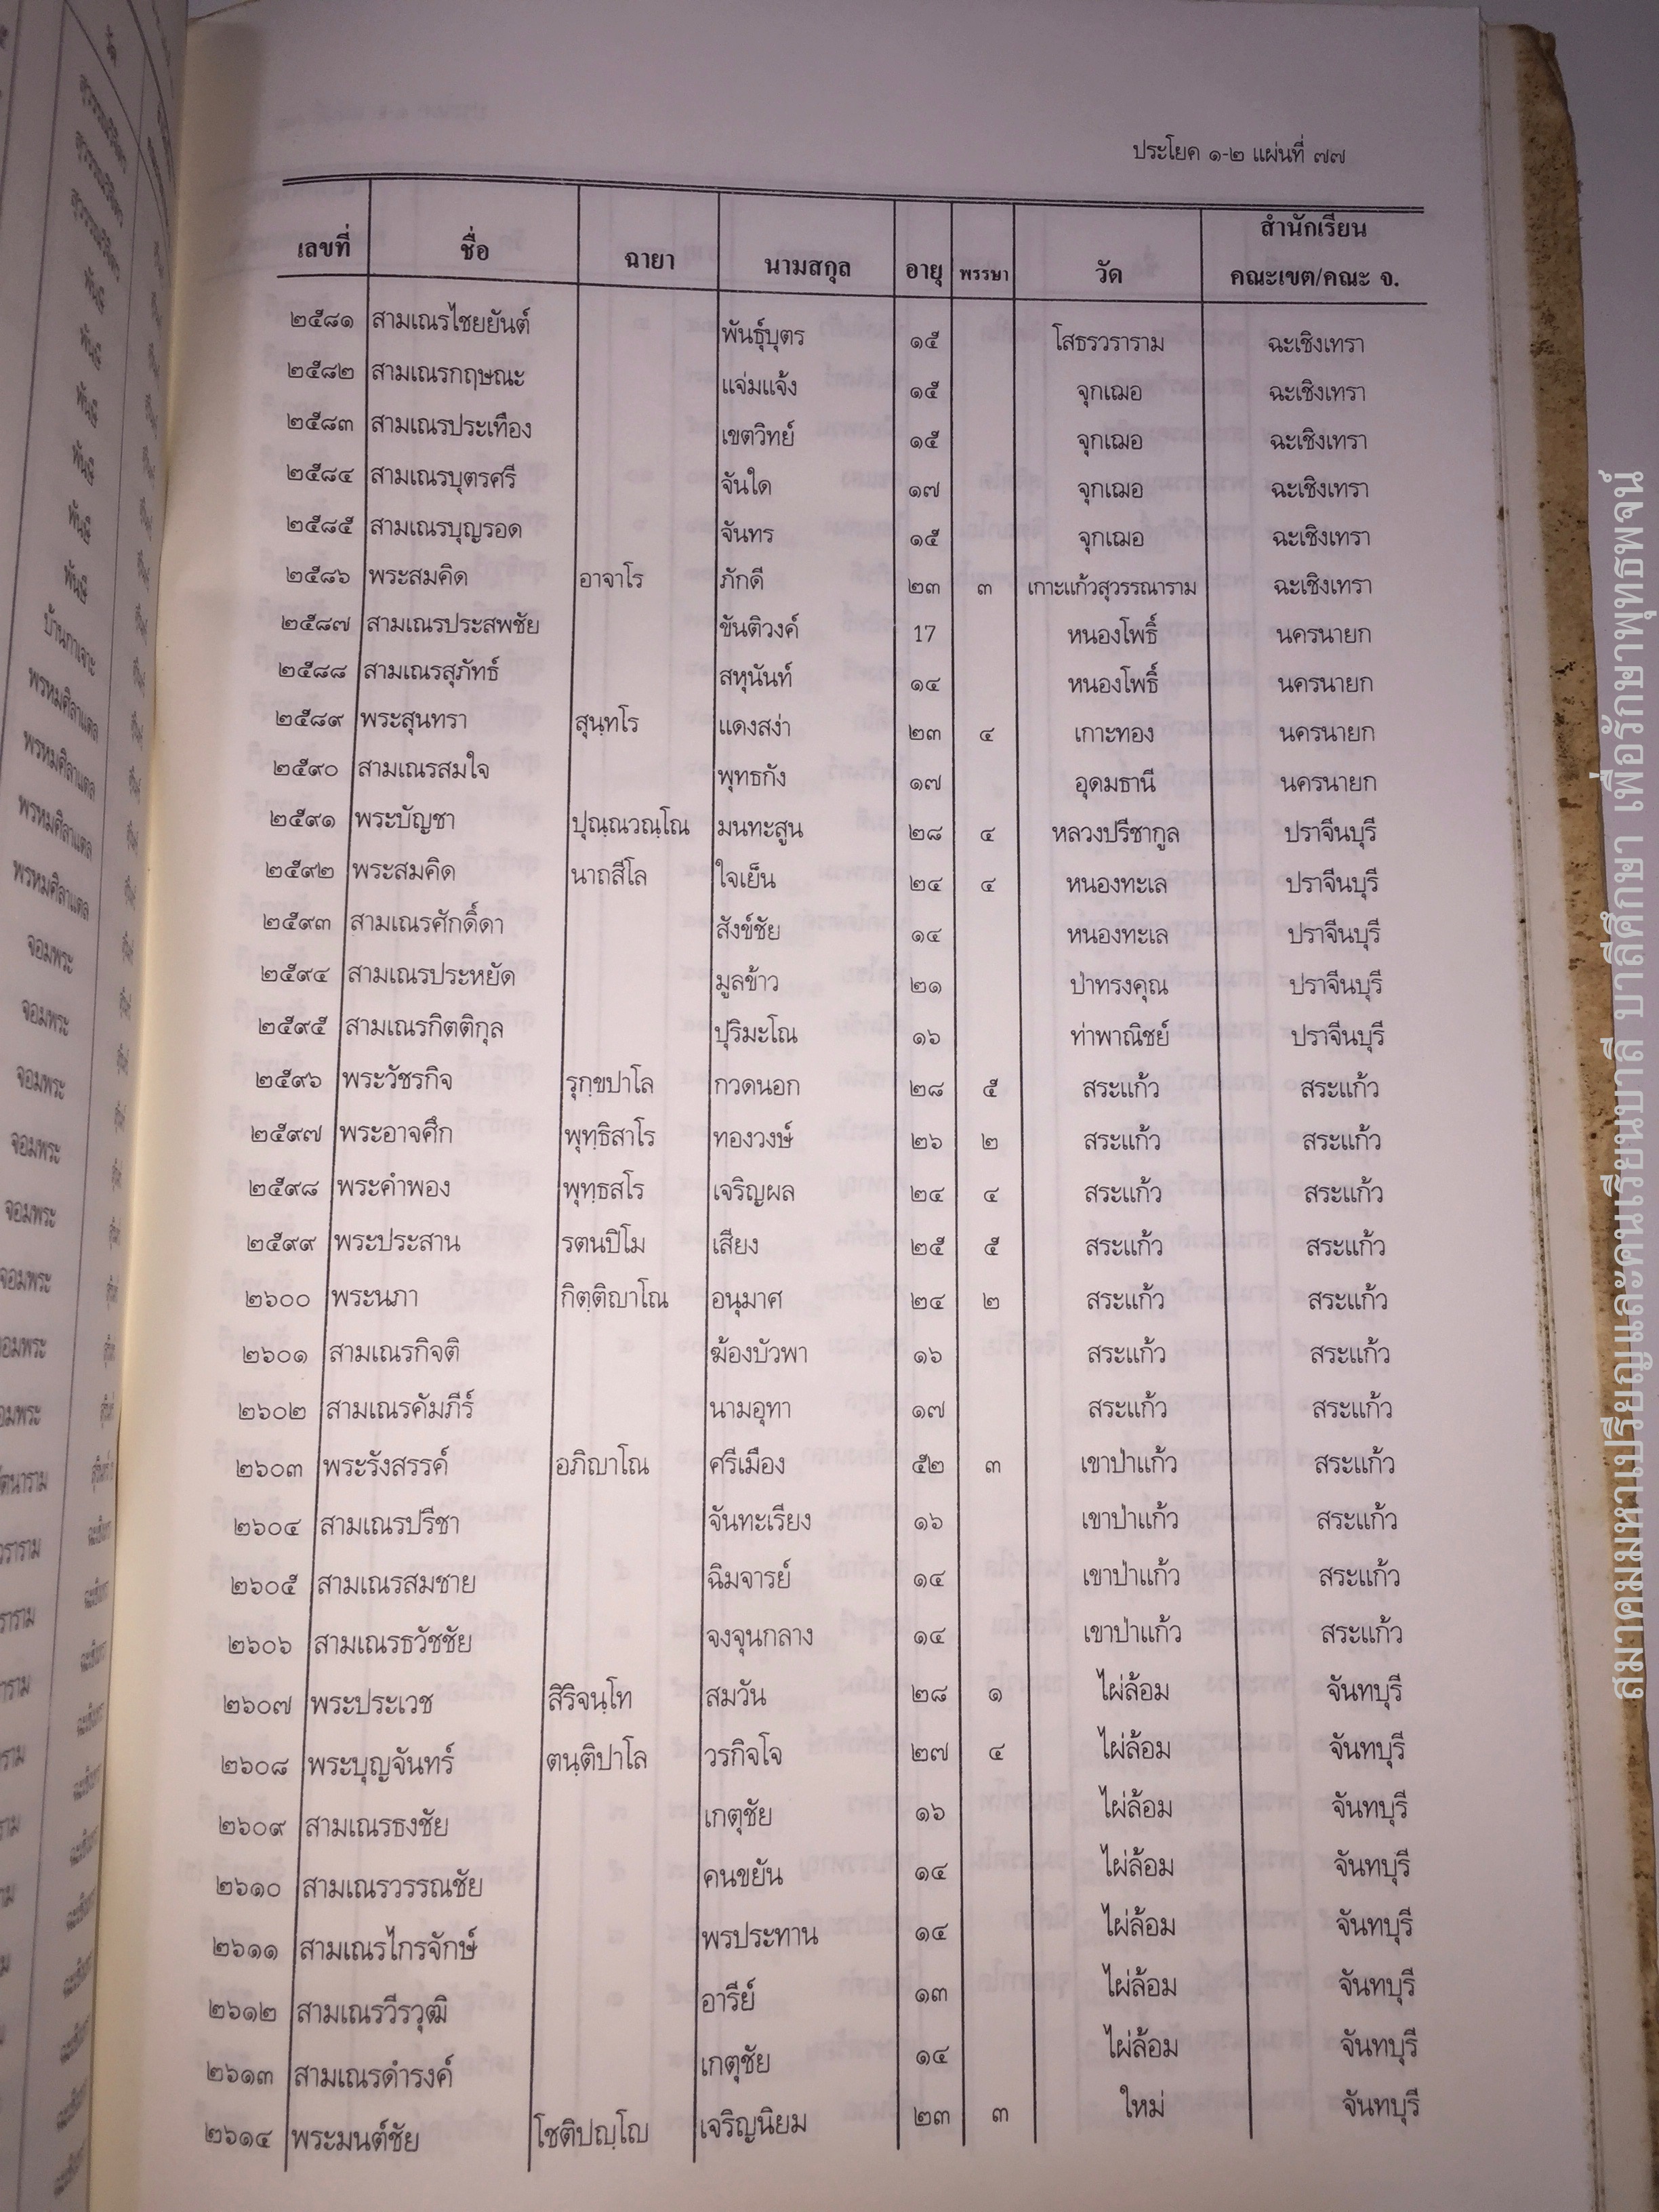 ประโยค ๑-๒ แผ่นที่ ๗๗
เลขที่ ชื่อ ฉายา นามสกุล อายุ พรรษา วัด สำนักเรียน คณะเขต/คณะ จ.
๒๕๘๑ สามเณรไชยยันต์ พันธุ์บุตร ๑๕ โสธรวราราม ฉะเชิงเทรา
๒๕๘๒ สามเณรกฤษณะ แจ่มแจ้ง ๑๕ จุกเฌอ ฉะเชิงเทรา
๒๕๘๓ สามเณรประเทือง เขตวิทย์ ๑๕ จุกเฌอ ฉะเชิงเทรา
๒๕๘๔ สามเณรบุตรศรี จันใด ๑๗ จุกเฌอ ฉะเชิงเทรา
๒๕๘๕ สามเณรบุญรอด จันทร ๑๕ จุกเฌอ ฉะเชิงเทรา
๒๕๘๖ พระสมคิด อาจาโร ภักดี ๒๓ ๓ เกาะแก้วสุวรรณาราม ฉะเชิงเทรา
๒๕๘๗ สามเณรประสพชัย ขันติวงค์ 17 หนองโพธิ์ นครนายก
๒๕๘๘ สามเณรสุภัทร์ สหุนันท์ ๑๔ หนองโพธิ์ นครนายก
๒๕๘๙ พระสุนทรา สุนฺทโร แดงสง่า ๒๓ ๔ เกาะทอง นครนายก
๒๕๙๐ สามเณรสมใจ พุทธกัง ๑๗ อุดมธานี นครนายก
๒๕๙๑ พระบัญชา ปุณฺณวณฺโณ มนทะสูน ๒๘ ๔ หลวงปรีชากูล ปราจีนบุรี
๒๕๙๒ พระสมคิด นาถสีโล ใจเย็น ๒๔ ๔ หนองทะเล ปราจีนบุรี
๒๕๙๓ สามเณรศักดิ์ดา สังข์ชัย ๑๔ หนองทะเล ปราจีนบุรี
๒๕๙๔ สามเณรประหยัด มูลข้าว ๒๑ ป่าทรงคุณ ปราจีนบุรี
๒๕๙๕ สามเณรกิตติกุล ปุริมะโณ ๑๖ ท่าพาณิชย์ ปราจีนบุรี
๒๕๙๖ พระวัชรกิจ รุกฺขปาโล กวดนอก ๒๘ ๕ สระแก้ว สระแก้ว
๒๕๙๗ พระอาจศึก พุทฺธิสาโร ทองวงษ์ ๒๖ ๒ สระแก้ว สระแก้ว
๒๕๙๘ พระคำพอง พุทฺธสโร เจริญผล ๒๔ ๔ สระแก้ว สระแก้ว
๒๕๙๙ พระประสาน รตนปิโม เสียง ๒๕ ๕ สระแก้ว สระแก้ว
๒๖๐๐ พระนภา กิตฺติญาโณ อนุมาศ ๒๔ ๒ สระแก้ว สระแก้ว
๒๖๐๑ สามเณรกิจติ ฆ้องบัวพา ๑๖ สระแก้ว สระแก้ว
๒๖๐๒ สามเณรคัมภีร์ นามอุทา ๑๗ สระแก้ว สระแก้ว
๒๖๐๓ พระรังสรรค์ อภิญาโณ ศรีเมือง ๕๒ ๓ เขาป่าแก้ว สระแก้ว
๒๖๐๔ สามเณรปรีชา จันทะเรียง ๑๖ เขาป่าแก้ว สระแก้ว
๒๖๐๕ สามเณรสมชาย ฉิมจารย์ ๑๔ เขาป่าแก้ว สระแก้ว
๒๖๐๖ สามเณรธวัชชัย จงจุนกลาง ๑๔ เขาป่าแก้ว สระแก้ว
๒๖๐๗ พระประเวช สิริจนฺโท สมวัน ๒๘ ๑ ไผ่ล้อม จันทบุรี
๒๖๐๘ พระบุญจันทร์ ตนฺติปาโล วรกิจโจ ๒๗ ๔ ไผ่ล้อม จันทบุรี
๒๖๐๙ สามเณรธงชัย เกตุชัย ๑๖ ไผ่ล้อม จันทบุรี
๒๖๑๐ สามเณรวรรณชัย คนขยัน ๑๔ ไผ่ล้อม จันทบุรี
๒๖๑๑ สามเณรไกรจักษ์ พรประทาน ๑๔ ไผ่ล้อม จันทบุรี
๒๖๑๒ สามเณรวีรวุฒิ อารีย์ ๑๓ ไผ่ล้อม จันทบุรี
๒๖๑๓ สามเณรดำรงค์ เกตุชัย ๑๔ ไผ่ล้อม จันทบุรี
๒๖๑๔ พระมนต์ชัย โชติปญฺโญ เจริญนิยม ๒๓ ๓ ใหม่ จันทบุรี
สมาคมมหาเปรียญและคนเรียนบาลี บาลีศึกษา เพื่อรักษาพุทธพจน์